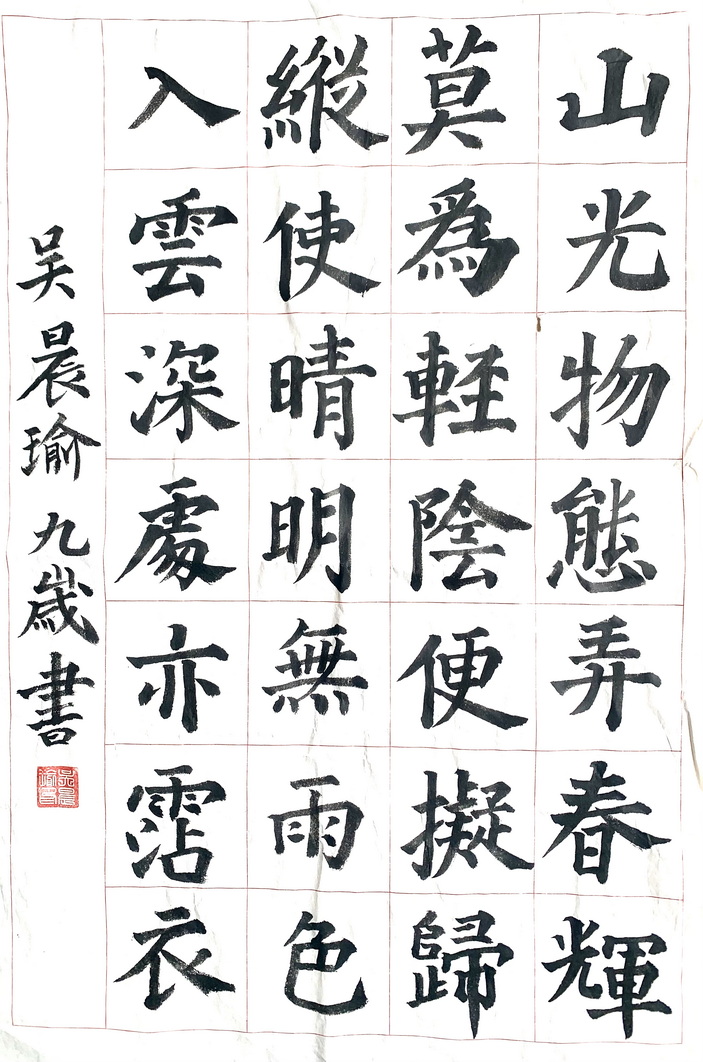 山光物態弄春輝
莫為輕陰便擬歸
縱使晴明無雨色
入雲深處亦霑衣
吳晨瑜九歲書